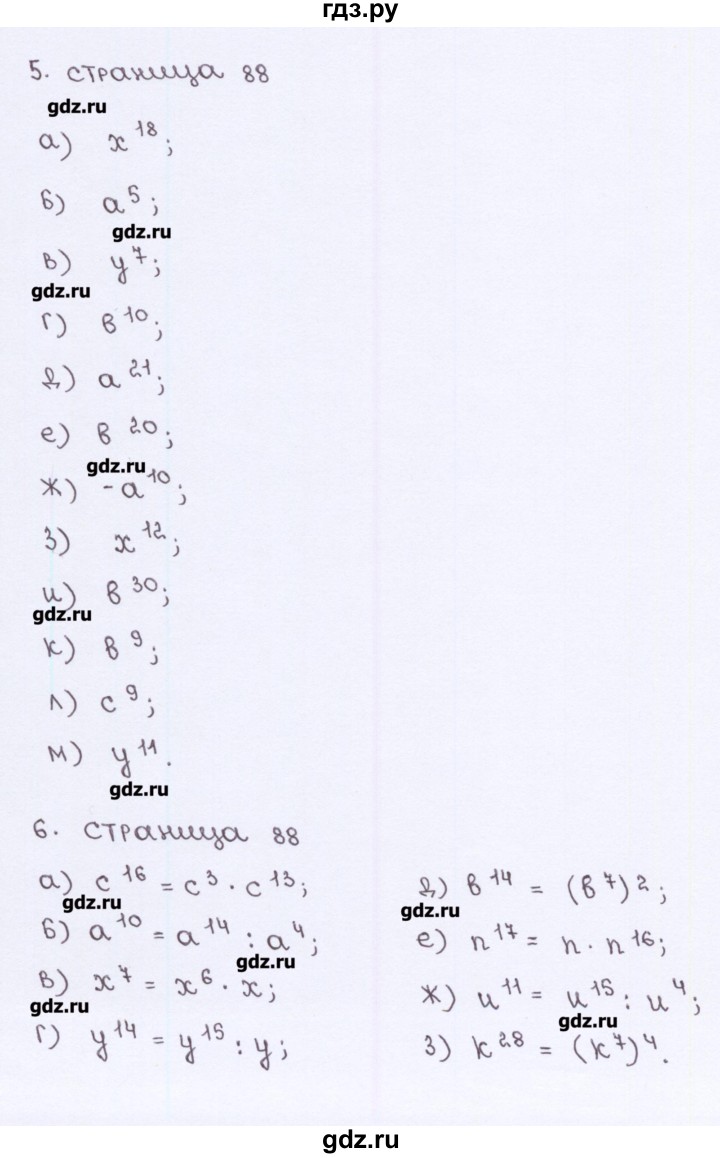 гдз.ру
5. страница 88
gdz.ru
а) x^18;
б) a^5;
gdz.ru
в) y^7;
gdz.ru
г) в^10;
д) a^21;
е) в^20;
gdz.ru
ж) -a^10;
з) x^12;
и) в^30;
gdz.ru
к) в^9;
л) c^9;
м) y^11.
gdz.ru
6. страница 88
а) c^16 = c^3 · c^13;
gdz.ru
б) a^10 = a^14 : a^4;
gdz.ru
в) x^7 = x^6 · x;
gdz.ru
г) y^14 = y^15 : y;
д) в^14 = (в^7)^2;
gdz.ru
е) n^17 = n · n^16;
ж) u^11 = u^15 : u^4;
gdz.ru
з) k^28 = (k^7)^4.
gdz.ru